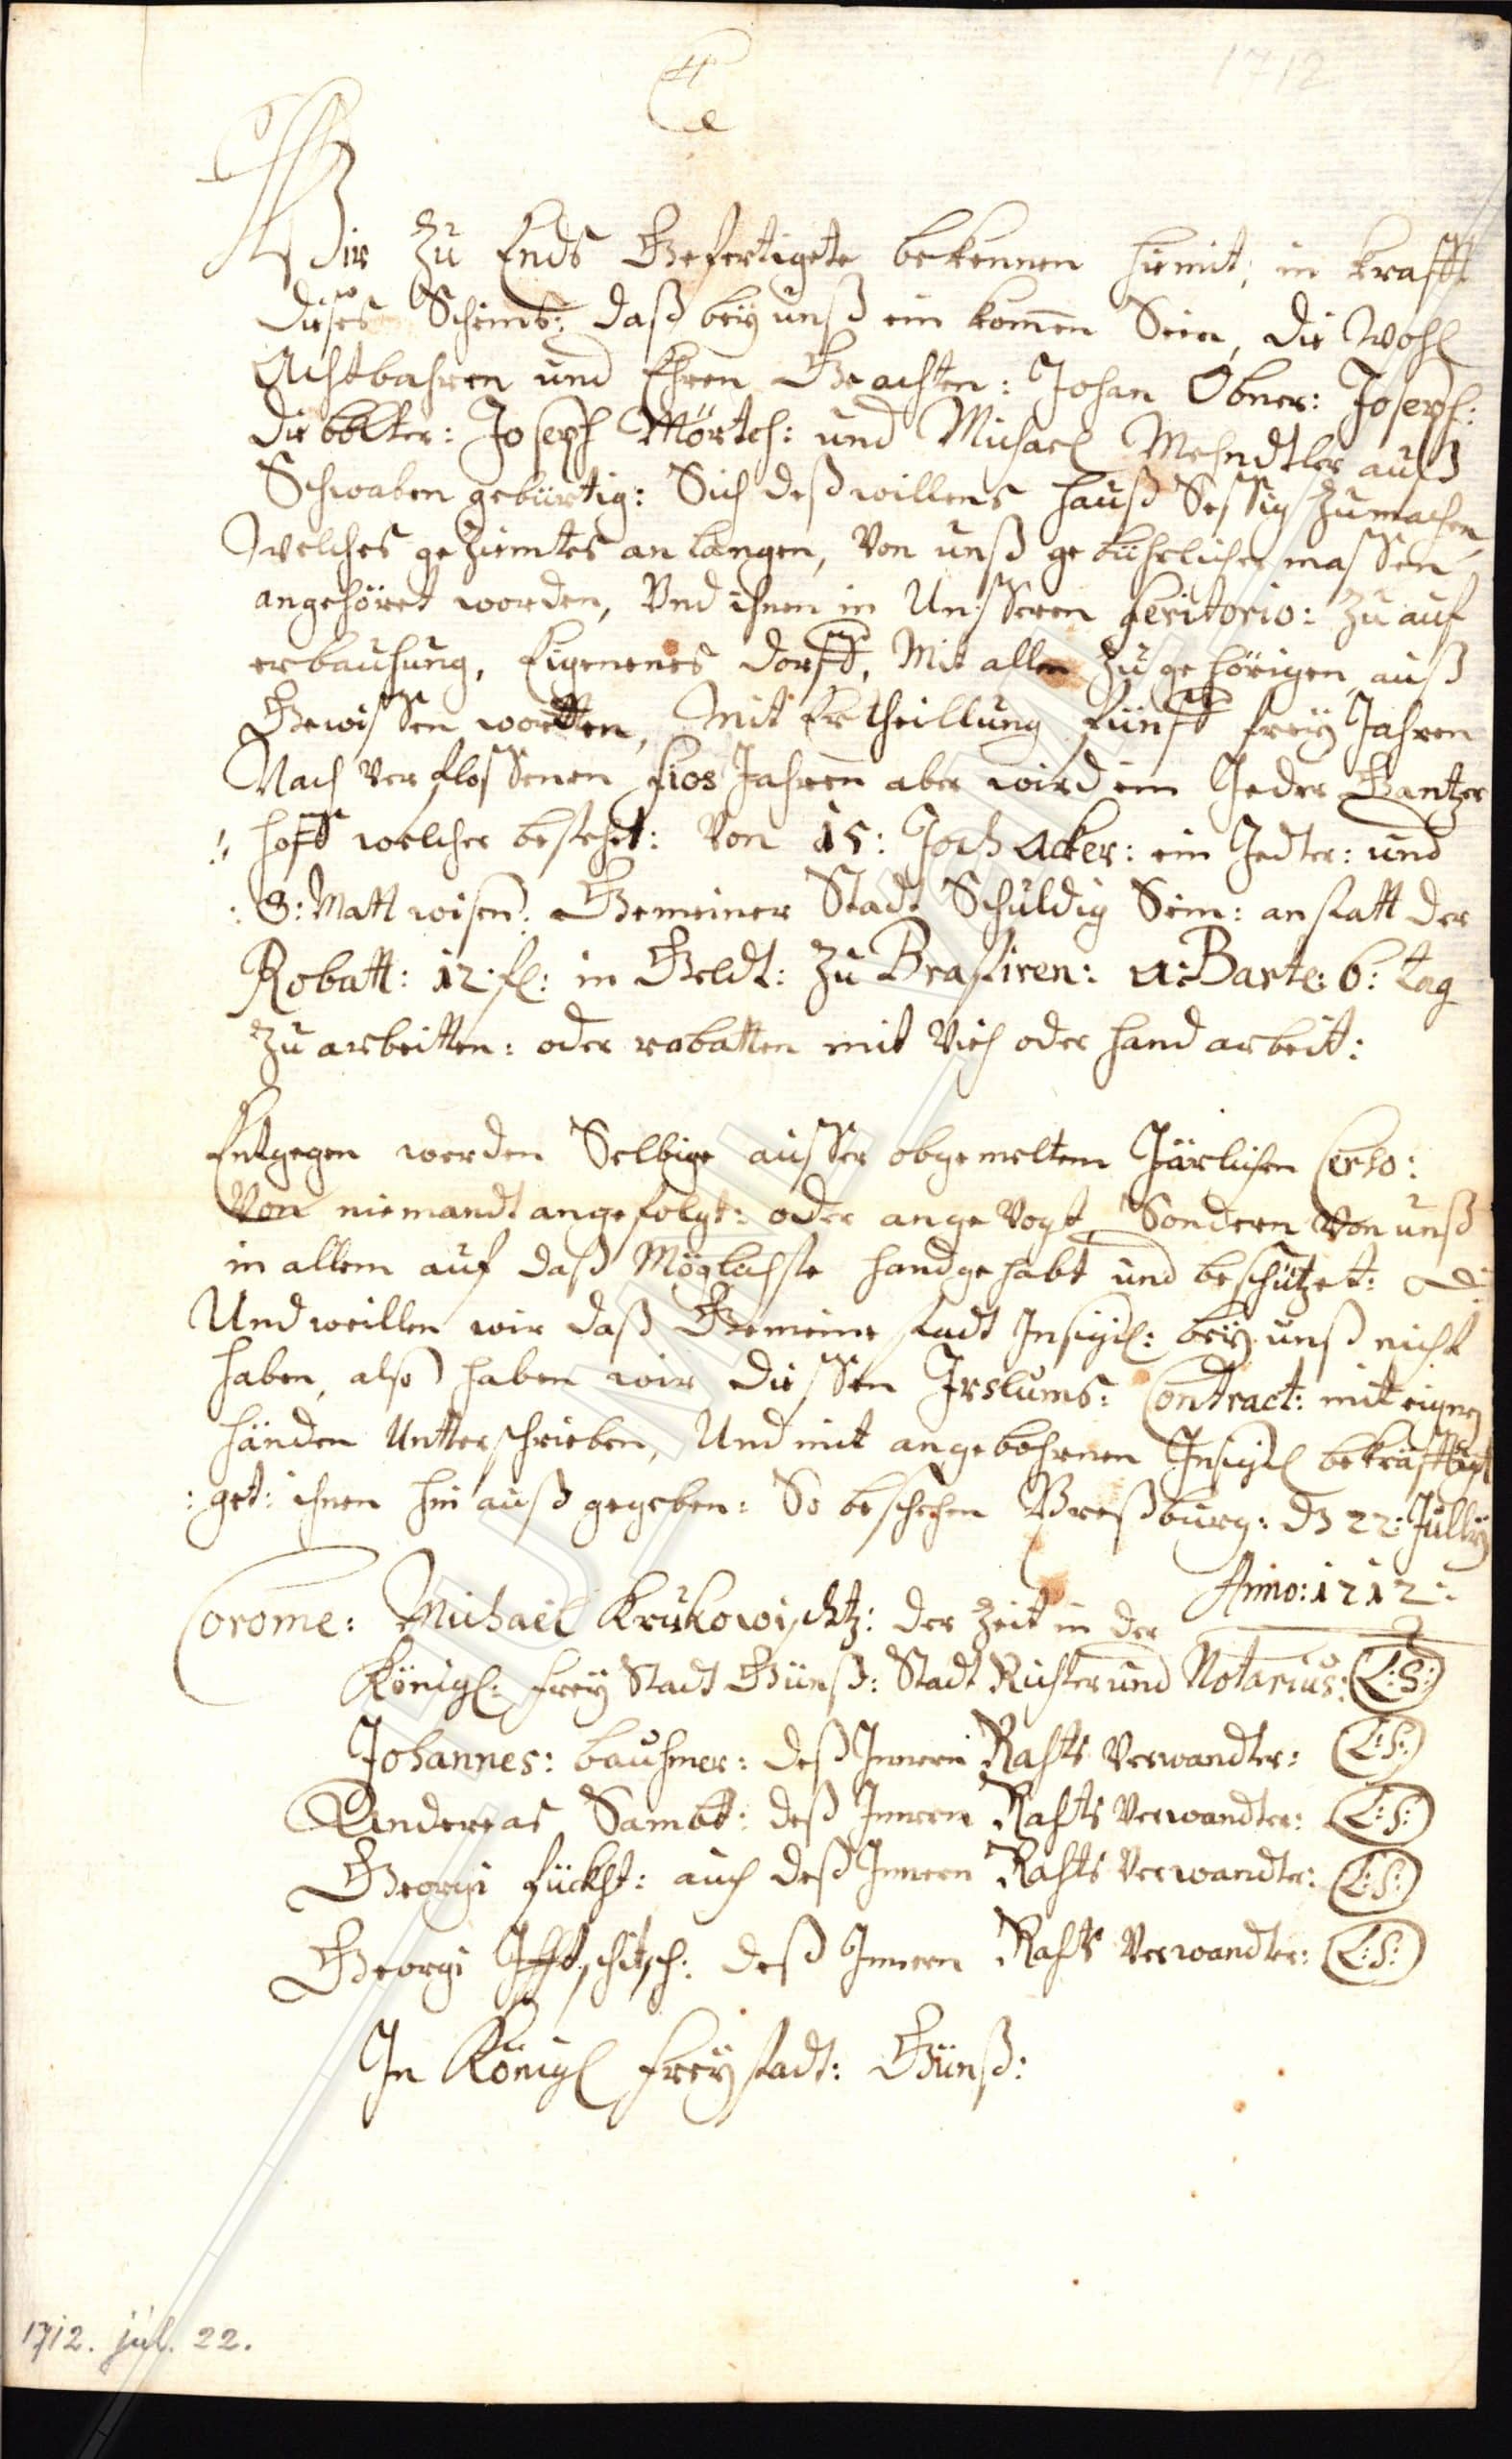 1712
Wir Zu Ends Gefertigete bekennen hiemit, in krafft
dieses Scheins: daß beÿ unß ein kom̄en Sein, die Wohl
Achtbahren und Ehren Geachten: Johan Obner: Joseph:
Joseph Mörtch: und Michael Mehndtler auß
Schwaben gebürtig: Sich deß willens hauß Seßig Zu machen,
Welches geZimtes an langen, Von unß gebührlicher massen
angehöret worden, Vnd ihnen in Unsseren teritorio: Zu auf
erbauhung, Eigenenes dorfft, Mit allen Zu gehörigen auß
Gewissen wortten, Mit Ertheillung fünfft freÿ Jahren
Nach Ver flossenen Jahren aber wird ein Jeder Gantzer
hofft welcher bestehet: Von 15: Joch acker: ein Jedter: und
: 8: Matt wisen: Gemeiner Stadt Schuldig Sein: anstatt der
Robatt: 12: fl: in Geldt: Zu Brastiren: a: Barte: 6: tag
Zu arbeitten: oder robatten mit Vieh oder hand arbeit:
Entgegen werden Selbige ausser obgemeltem Järlichen
Von niemandt angefolgt: oder ange Vogt, Sondern Von unß
in allem auf daß Möglichste handgehabt und beschützet:
Und weillen wir daß Gemeine stadt Insigl: beÿ unß nicht
haben, also haben wir diessen Contract: mit eignen
händen Untterschrieben, Und mit angebohrnen Insigl bekräfftigt
: get: ihnen hin auß gegeben: So beschehen Presßburg: d 22: Jullÿ
Anno: 1712:
Corome: Michael Krukowischtz: der Zeit in der
Königl: freÿ Stadt Günß: Stadt Richter und Notarius: L:S:
Johannes: bauhmer: deß Innern Rahts Verwandter: L:S:
Andereas Sambt: deß Innern Rahts Verwandter: L:S:
Georgi fückht: auch deß Innern Rahts Verwandter: L:S:
Georgi deß Innern Rahts Verwandter: L:S:
In Königl freÿstadt: Günß:
1712. jul. 22.